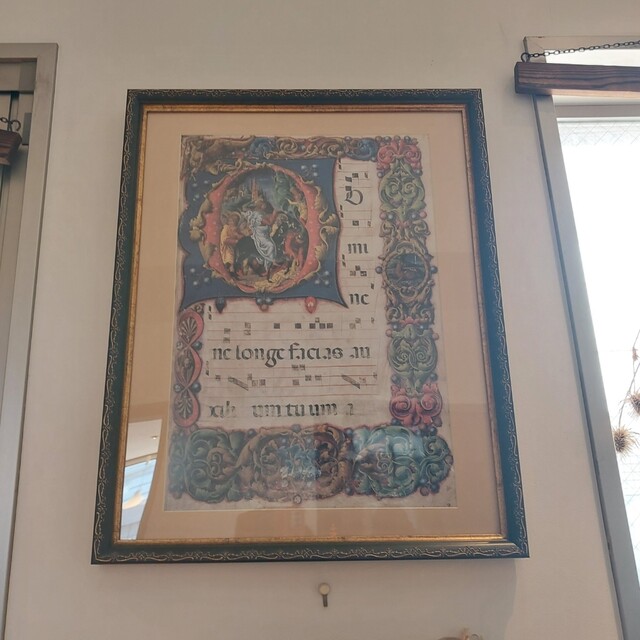 D
mi
ne
ne longe facias au
xili um tu um a